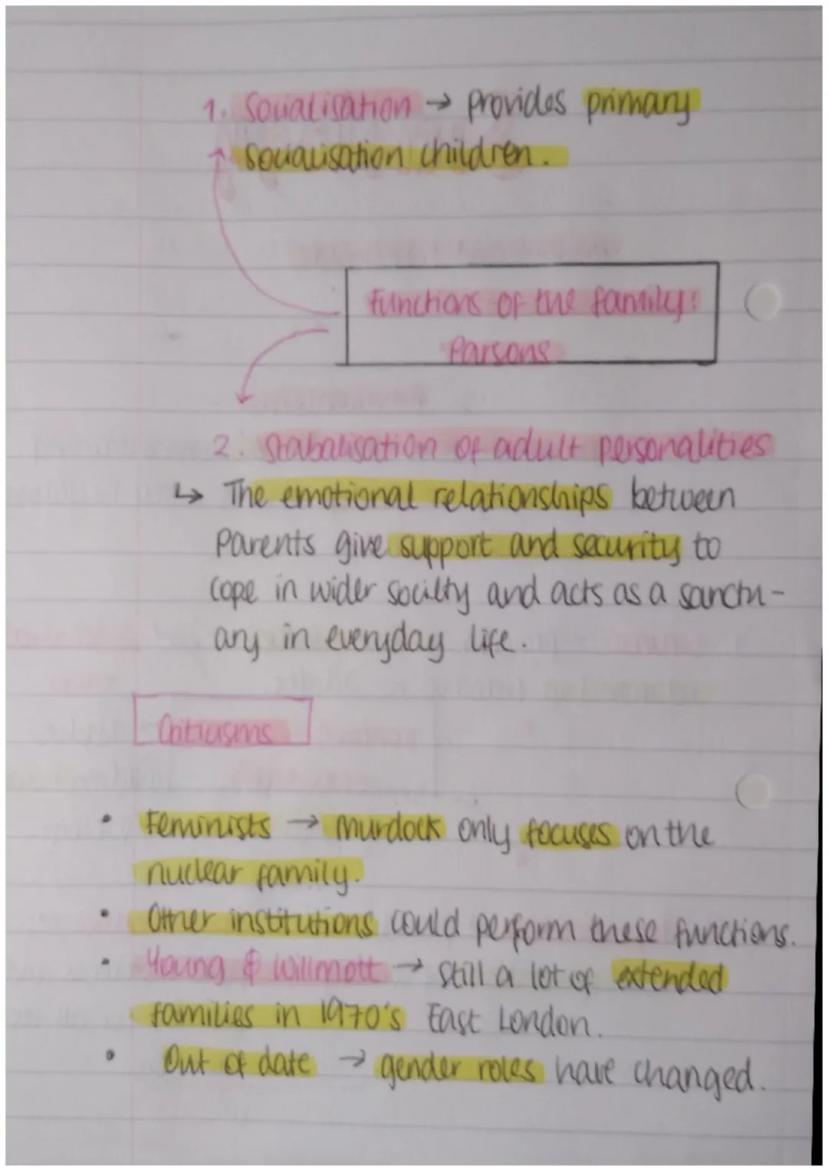 1. Socialisation → provides primary
socialisation children.
Functions of the family:
Parsons
2. Stabalisation of adult personalities
↳ The emotional relationships between
Parents give support and security to
cope in wider society and acts as a sanctu-
ary in everyday life.
Criticisms
• Feminists → Murdock only focuses on the
nuclear family.
• Other institutions could perform these functions.
• Young & Willmott → still a lot of extended
families in 1970's East London.
• Out of date → gender roles have changed.